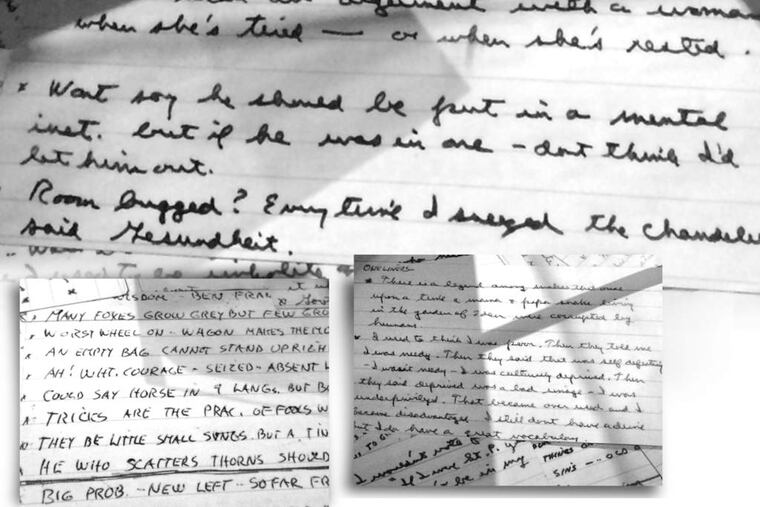 argument with a woman
when she's tired — or when she's rested.
* Wont say he should be put in a mental
inst. but if he was in one - dont think I'd
let him out.
Room bugged? Every time I sneezed the chandelie
said Gesundheit.
WISDOM - BEN FRAN
MANY FOXES GROW GREY BUT FEW GRO
WORST WHEEL ON - WAGON MAKES THE MO
AN EMPTY BAG CANNOT STAND UPRIGH
AH! WHT. COURAGE - SEIZED - ABSENT
COULD SAY HORSE IN 9 LANGS. BUT BO
TRICKS ARE THE PRAC. OF FOOLS W
THEY BE LITTLE SMALL SONGS. BUT A TIN
HE WHO SCATTERS THORNS SHOULD
BIG PROB. - NEW LEFT - SO FAR FR
ONE LINERS
* There is a legend among snakes that once
upon a time a mama & papa snake living
in the garden of Eden were corrupted by
humans.
* I used to think I was poor. Then they told me
I was needy. Then they said that was self defeating
- I wasn't needy - I was culturally deprived. Then
they said deprived was a bad image - I was
underprivileged. That became over used and I
became disadvantaged. I still dont have a dime
but I do have a great vocabulary.
I wouldn't
be in my THINGS
SINS